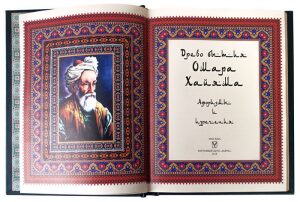 Древо бытия
Омара
Хайяма
Афоризмы
и
изречения